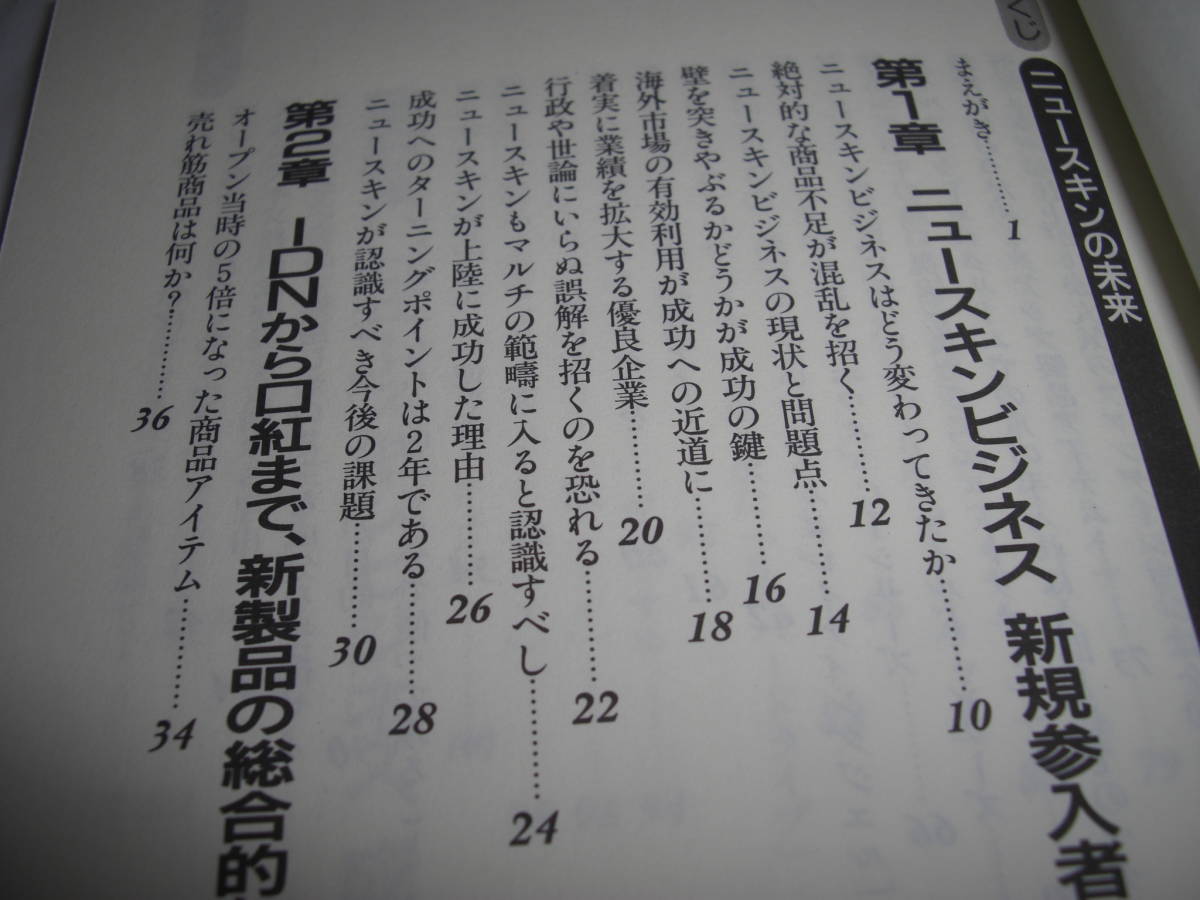 くじ
ニュースキンの未来
まえがき…………1
第1章 ニュースキンビジネス 新規参入者
ニュースキンビジネスはどう変わってきたか…………10
絶対的な商品不足が混乱を招く…………12
ニュースキンビジネスの現状と問題点…………14
壁を突きやぶるかどうかが成功の鍵…………16
海外市場の有効利用が成功への近道に…………18
着実に業績を拡大する優良企業…………20
行政や世論にいらぬ誤解を招くのを恐れる…………22
ニュースキンもマルチの範疇に入ると認識すべし…………24
ニュースキンが上陸に成功した理由…………26
成功へのターニングポイントは2年である…………28
ニュースキンが認識すべき今後の課題…………30
第2章 IDNから口紅まで、新製品の総合的
オープン当時の5倍になった商品アイテム…………34
売れ筋商品は何か?…………36